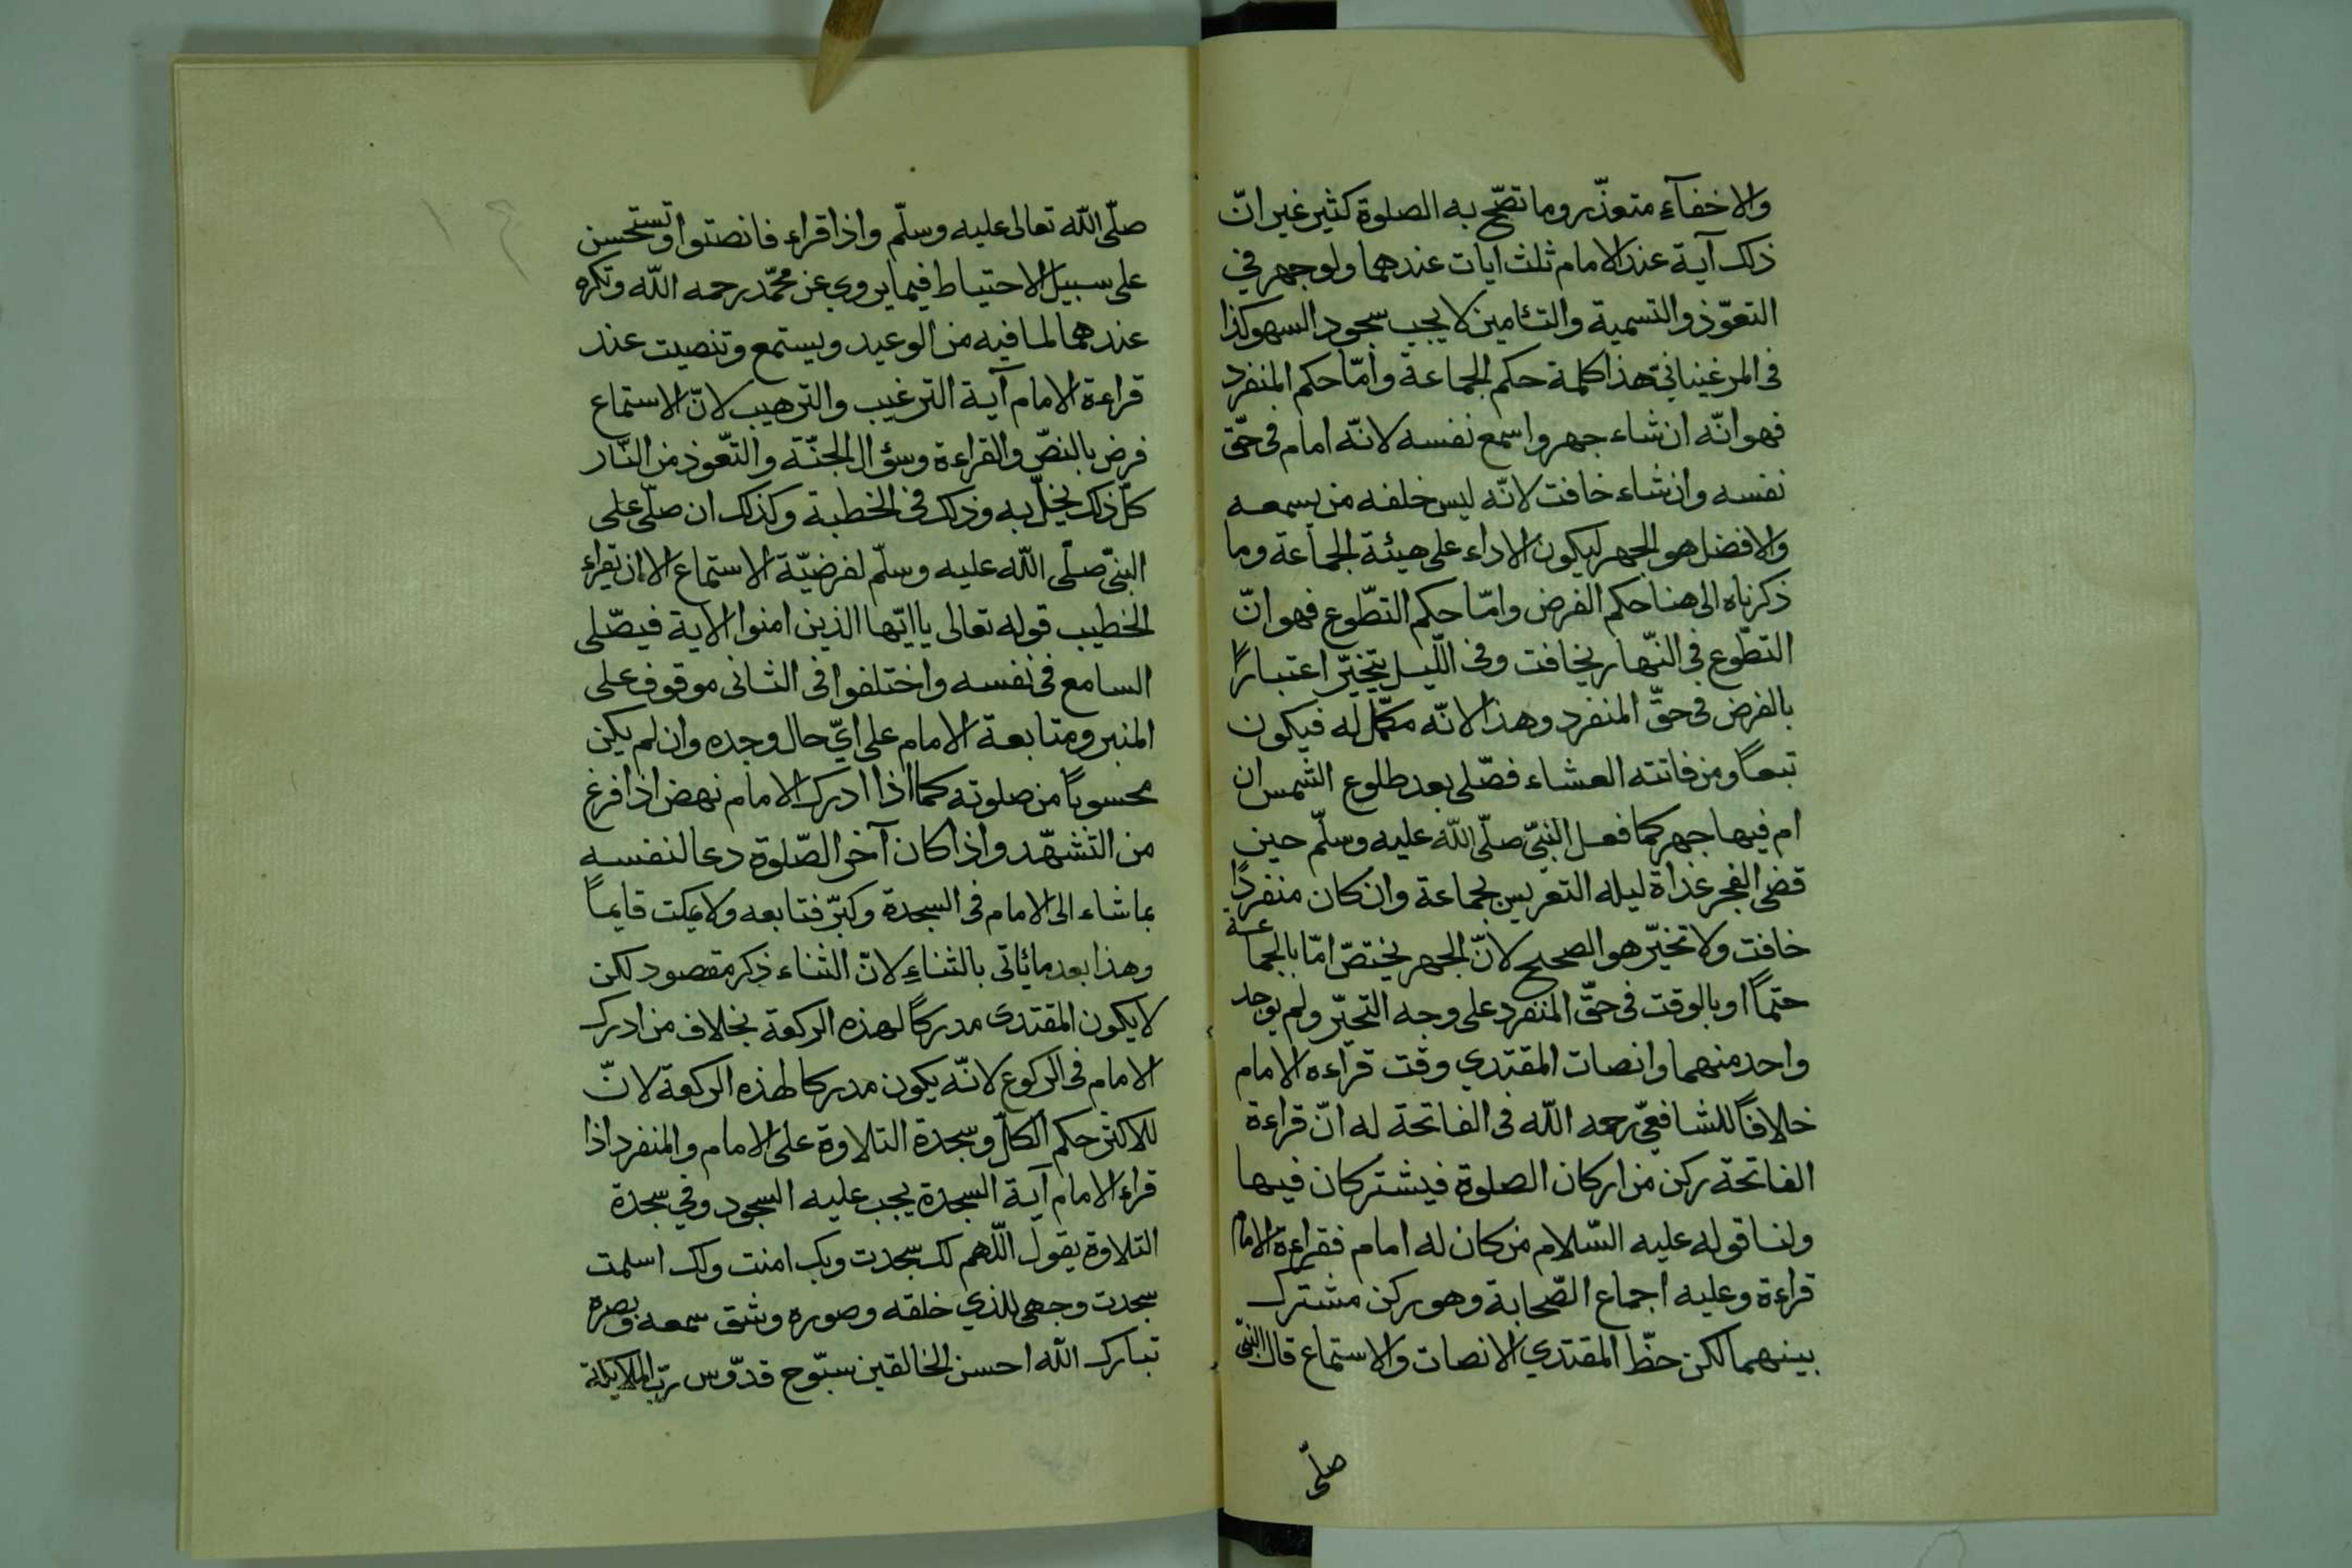 والاخفآء متعذّر وما تصّح به الصلوة كثير غير انّ
ذلك آية عند الامام ثلث ايات عندهما ولو جهر في
التعوّذ والتسمية والتـٔامين لا يجب سجود السهو كذا
فى المرغينانى هذا كلمة حكم الجماعة وامّا حكم المنفرد
فهو انّه ان شاء جهر واسمع نفسه لانّه امام فى حّق
نفسه وان شاء خافت لانّه ليس خلفه من يسمعه
والافضل هو الجهر ليكون الاداء على هيئة الجماعة وما
ذكرناه الى هنا حكم الفرض وامّا حكم التطّوع فهو انّ
التطّوع فى النّهار يخافت وفى اللّيل يتخيّر اعتبارًا
بالفرض فى حقّ المنفرد وهذا لانّه مكمّل له فيكون
تبعاً ومن فاتته العشاء فصّلى بعد طلوع الشمس ان
ام فيها جهر كما فعل النّبىّ صلّى اللّه عليه وسلّم حين
قضى الفجر غداة ليله التعريس بجماعة وان كان منفردًا
خافت ولا تخيّر هو الصحيح لانّ الجهر يختصّ امّا بالجماعة
حتماً او بالوقت فى حقّ المنفرد على وجه التخيّر ولم يوجد
واحد منهما وانصات المقتدي وقت قراءه الامام
خلافاً للشافعىّ رحمه اللّه فى الفاتحة له انّ قراءة
الفاتحة ركن من اركان الصلوة فيشتركان فيها
ولنا قوله عليه السّلام من كان له امام فقراءة الامام
قراءة وعليه اجماع الصّحابة وهو ركن مشترك
بينهما لكن حظّ المقتدي الانصات والاستماع قال النّبىّ
صلّى
صلّى اللّه تعالى عليه وسلّم واذا قراء فانصتوا وتستحسن
على سبيل الاحتياط فيما يروي عن محمّد رحمه اللّه وتكره
عندهما لما فيه من الوعيد ويستمع وتنصيت عند
قراءة الامام آية الترغيب والترهيب لانّ الاستماع
فرض بالنصّ والقراءة وسؤال الجنّة والتعّوذ من النّار
كلّ ذلك يخلّ به وذلك فى الخطبة وكذلك ان صلّى على
النبىّ صلّى اللّه عليه وسلّم لفرضيّة الاستماع الا ان يقراء
الخطيب قوله تعالى يا ايّها الذين امنوا الاية فيصّلى
السامع فى نفسه واختلفوا فى الثانى موقوف على
المنبر ومتابعة الامام على ايّ حال وجده وان لم يكن
محسوباً من صلوته كما اذا ادرك الامام نهض اذا فرغ
من التشهّد واذا كان آخر الصّلوة دعا لنفسه
بما شاء الى الامام فى السجدة وكبرّ فتابعه ولا يمكث قايماً
وهذا بعد ما ئاتى بالثناء لانّ الثناء ذكر مقصود لكن
لا يكون المقتدى مدركاً لهذه الركعة بخلاف من ادرك
الامام فى الركوع لانّه يكون مدركا لهذه الركعة لانّ
للاكثر حكم الكلّ وسجدة التلاوة على الامام والمنفرد اذا
قراء الامام آية السجدة يجب عليه السجود وفي سجدة
التلاوة يقول اللّهم لك سجدت وبك امنت ولك اسلمت
سجدت وجهى للذي خلقه وصوره وشق سمعه وبصره
تبارك اللّه احسن الخالقين سبّوح قدّوس ربّ الملايكة